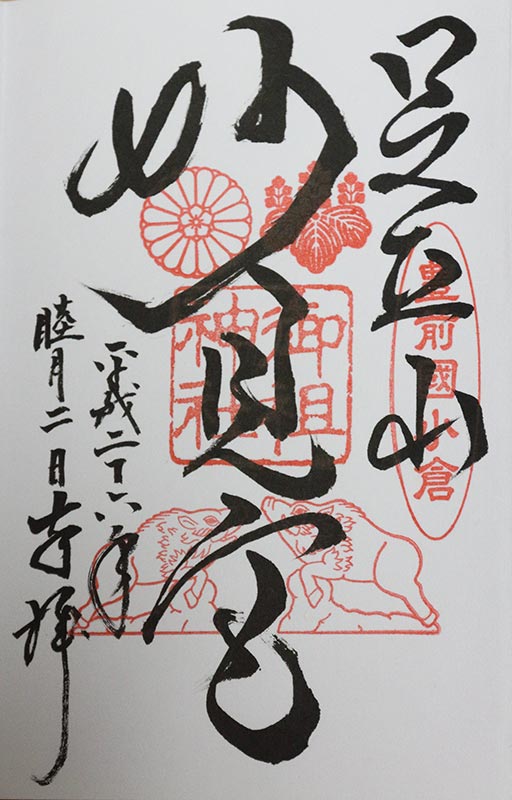 足立山
妙見宮
平成二十六年
睦月二日奉拝
豊前國小倉
御祖
神社